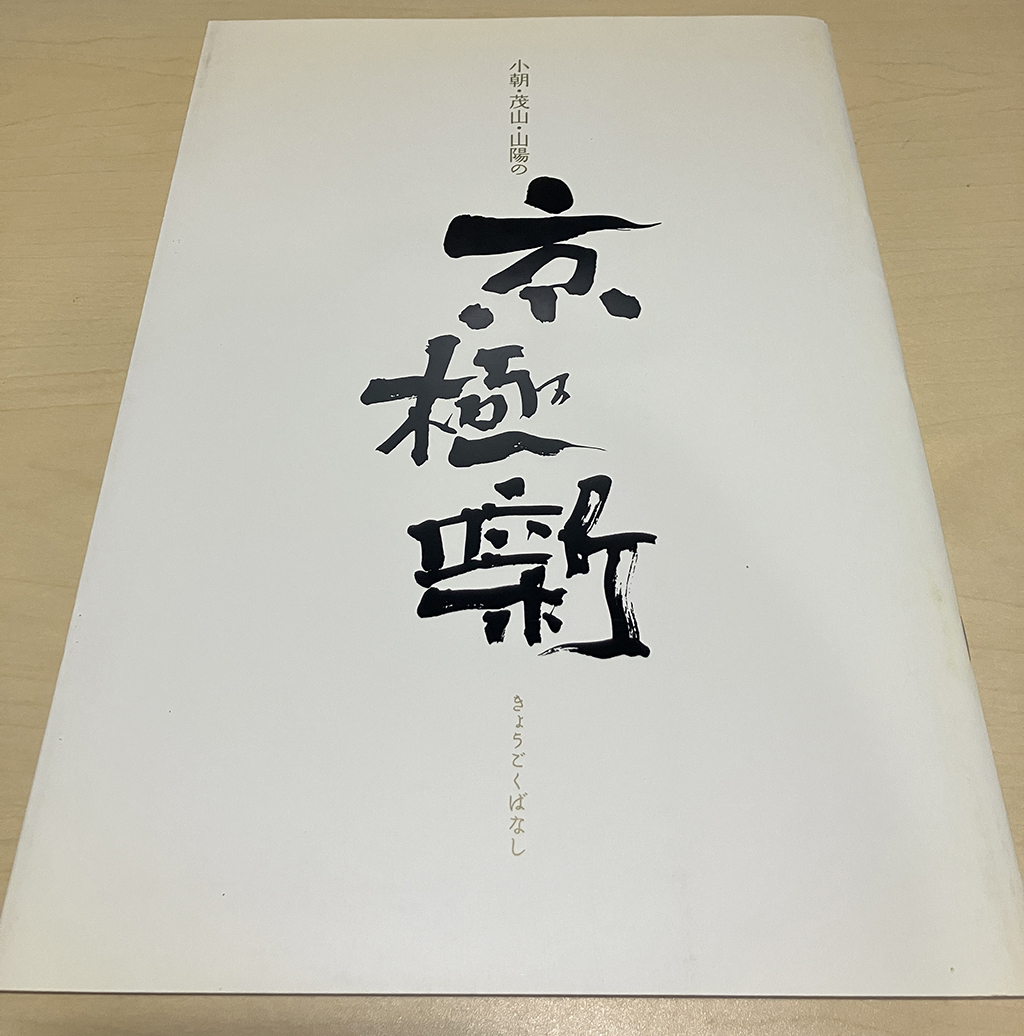 小朝・茂山・山陽の
京極噺
きょうごくばなし